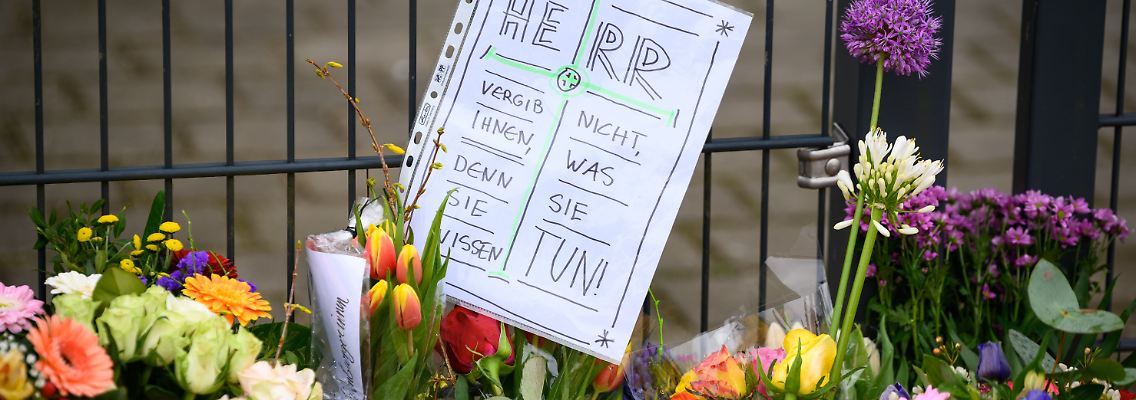 HERR
VERGIB
IHNEN,
DENN
SIE
WISSEN
NICHT,
WAS
SIE
TUN!